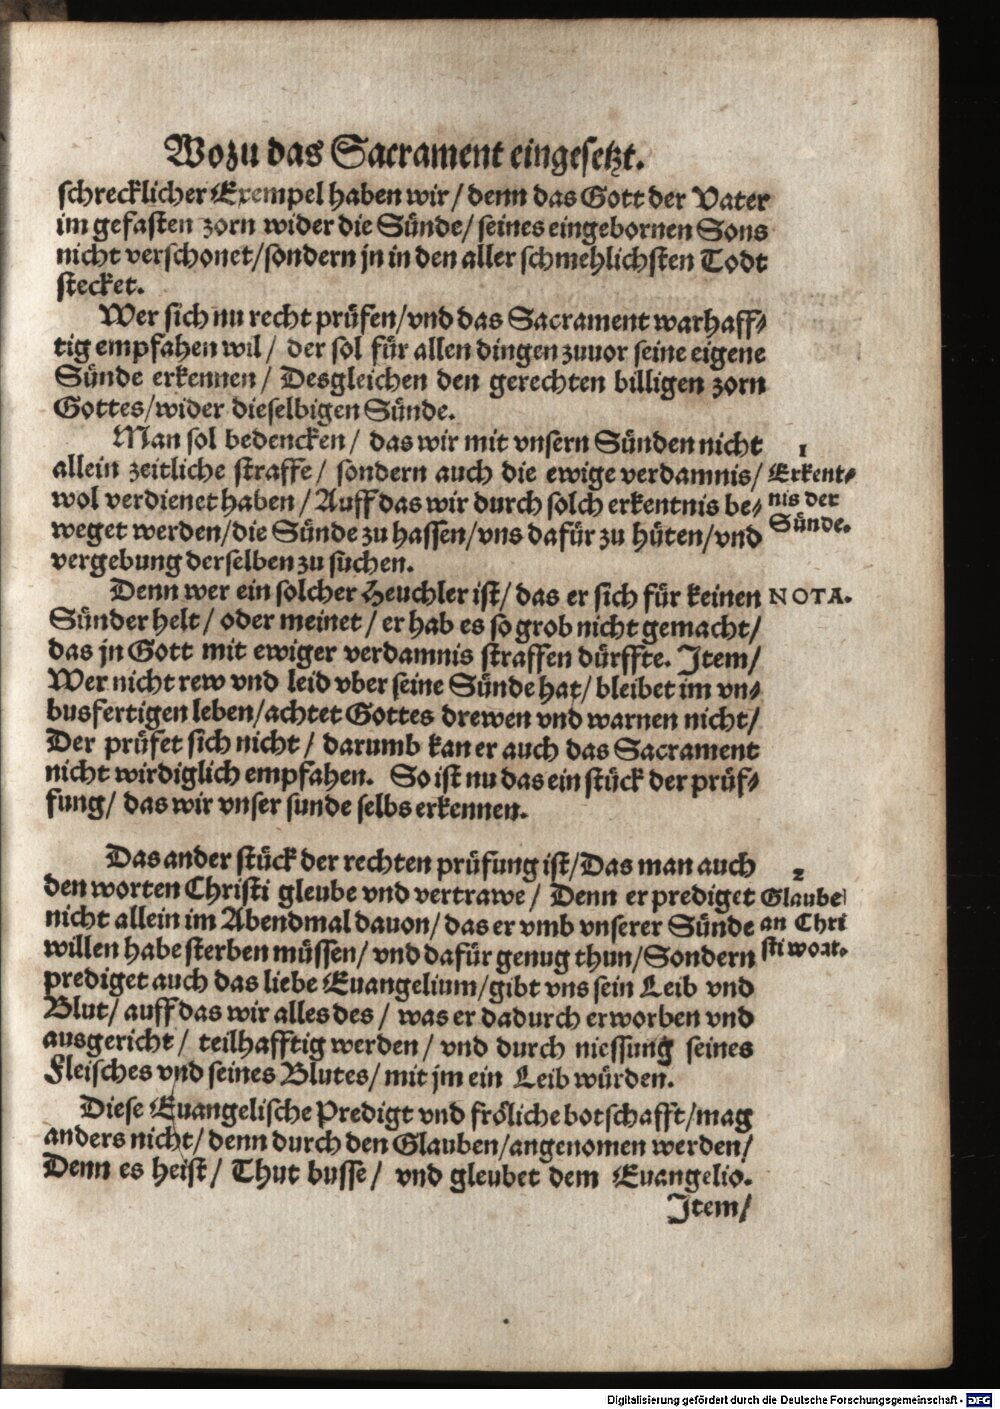 Wozu das Sacrament eingesetzt.
schrecklicher Exempel haben wir / denn das Gott der Vater
im gefasten zorn wider die Sünde / seines eingebornen Sons
nicht verschonet / sondern jn in den aller schmehlichsten Todt
stecket.
Wer sich nu recht prüfen / vnd das Sacrament warhaff-
tig empfahen wil / der sol für allen dingen zuuor seine eigene
Sünde erkennen / Desgleichen den gerechten billigen zorn
Gottes / wider dieselbigen Sünde.
Man sol bedencken / das wir mit vnsern Sünden nicht
allein zeitliche straffe / sondern auch die ewige verdamnis /
wol verdienet haben / Auff das wir durch solch erkentnis be-
weget werden / die Sünde zu hassen / vns dafür zu hüten / vnd
vergebung derselben zu suchen.
1
Erkent-
nis der
Sünde.
Denn wer ein solcher Heuchler ist / das er sich für keinen
NOTA.
Sünder helt / oder meinet / er hab es so grob nicht gemacht /
das jn Gott mit ewiger verdamnis straffen dürffte. Item /
Wer nicht rew vnd leid vber seine Sünde hat / bleibet im vn-
busfertigen leben / achtet Gottes drewen vnd warnen nicht /
Der prüfet sich nicht / darumb kan er auch das Sacrament
nicht wirdiglich empfahen. So ist nu das ein stück der prüf-
fung / das wir vnser sunde selbs erkennen.
Das ander stück der rechten prüfung ist / Das man auch
den worten Christi gleube vnd vertrawe / Denn er prediget
nicht allein im Abendmal dauon / das er vmb vnserer Sünde
willen habe sterben müssen / vnd dafür genug thun / Sondern
prediget auch das liebe Euangelium / gibt vns sein Leib vnd
Blut / auff das wir alles des / was er dadurch erworben vnd
ausgericht / teilhafftig werden / vnd durch niessung seines
Fleisches vnd seines Blutes / mit jm ein Leib würden.
2
Glaube
an Chri
sti wort.
Diese Euangelische Predigt vnd fröliche botschafft / mag
anders nicht / denn durch den Glauben / angenomen werden /
Denn es heist / Thut busse / vnd gleubet dem Euangelio.
Item /
Digitalisierung gefördert durch die Deutsche Forschungsgemeinschaft - DFG